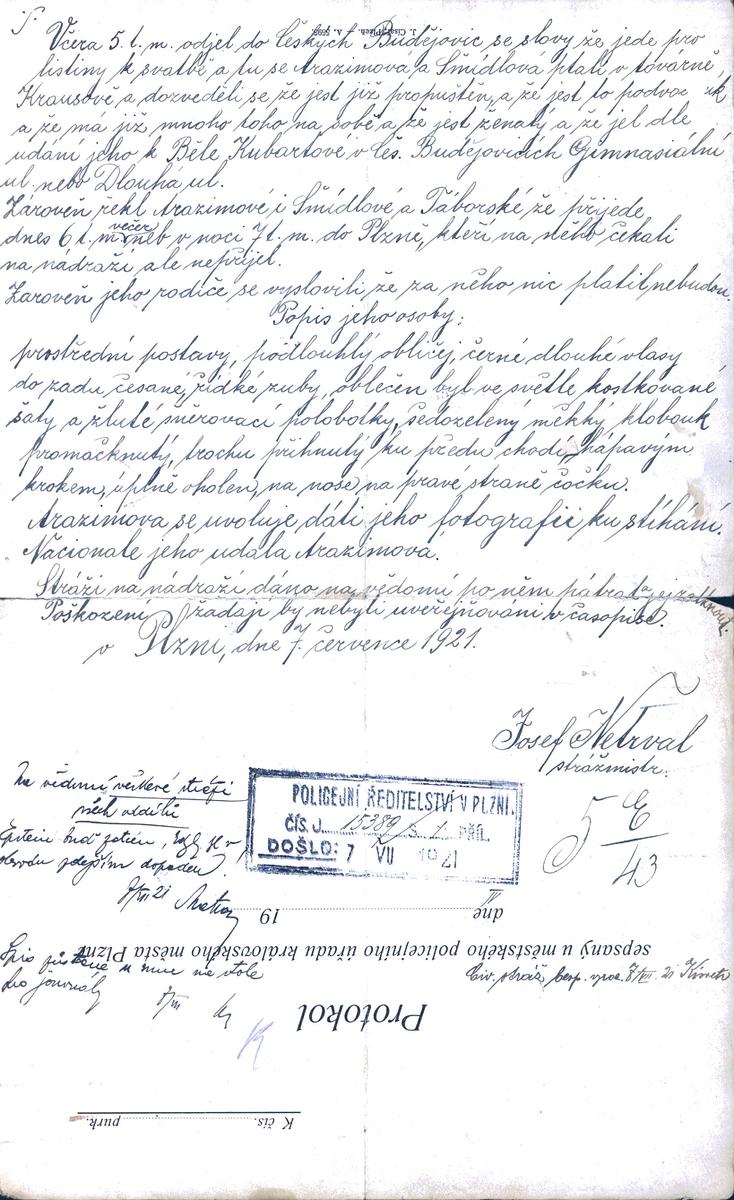 J. Císař, Plzeň. A. 5595
Včera 5. t. m. odjel do Českých Budějovic se slovy že jede pro
listiny k svatbě a tu se Arazimova a Šmídlova ptali v továrně
Krausově a dozveděli se že jest již propuštěn, a že jest to podvodník
a že má již mnoho toho na sobě a že jest ženatý a že jel dle
udání jeho k Běle Kubartové v Čes. Budějovicích Gimnasiální
ul. nebo Dlouhá ul.
Zároveň řekl Arazimové i Šmídlové a Táborské že přijede
dnes 6 t. m. večer neb v noci 7 t. m. do Plzně, kteří na něho čekali
na nádraží, ale nepřijel.
Zároveň jeho rodiče se vyslovili, že za něho nic platit nebudou.
Popis jeho osoby:
prostřední postavy, podlouhlý obličej, černé dlouhé vlasy
do zadu česané, řídké zuby, oblečen byl ve světle kostkované
šaty a žluté šněrovací polobotky, šedozelený měkký klobouk
promáčknutý, trochu přihnutý ku předu chodí, kápavým
krokem, úplně oholen, na nose na pravé straně čočku.
Arazimova se uvoluje dáti jeho fotografii ku stíhání.
Nacionale jeho udala Arazimova.
Stráži na nádraží dáno na vědomí po něm pátrat a jej zatknout.
Poškození žádají by nebyli uveřejňováni v časopise.
v Plzni, dne 7. července 1921.
Josef Netrval
strážmistr.
Na vědomí veškeré stráži
všech oddílů
POLICEJNÍ ŘEDITELSTVÍ V PLZNI.
ČÍS. J. 15389 S. 1. PŘÍL.
DOŠLO: 7 VII 1921
5 E/43
8/VII 21
dne 19
sepsaný u městského policejního úřadu královského města Plzně
Spis zůstane u mne na stole
Civ. stráž besp. 7/VII. 21
8/VII
Protokol
K čís. purk.